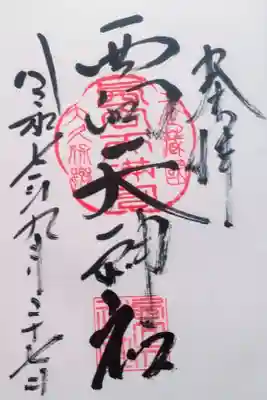 奉拝
西向天神社
令和七年九月二十七日